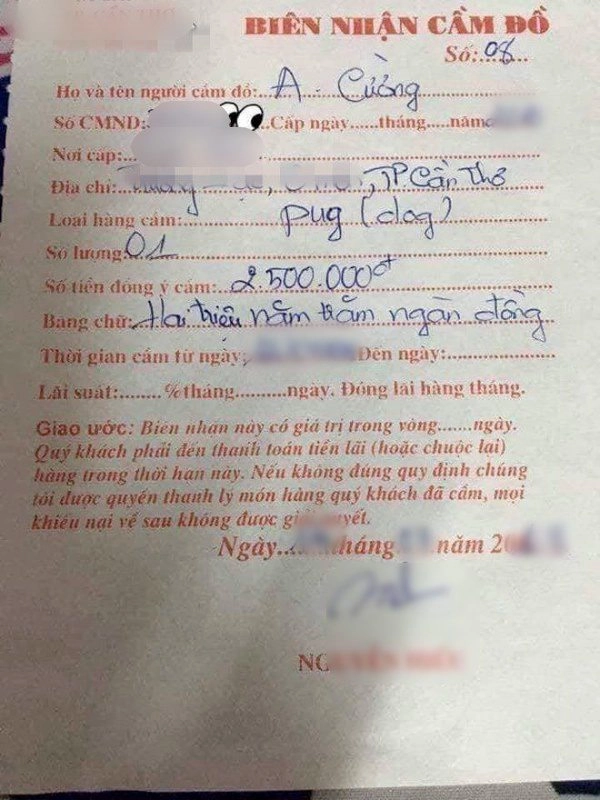 BIÊN NHẬN CẦM ĐỒ
Số: 08
Họ và tên người cầm đồ: A. Cường
Số CMND: Cấp ngày......tháng......năm
Nơi cấp:
Địa chỉ: , TP Cần Thơ
Loại hàng cầm: pug (dog)
Số lượng: 01
Số tiền đồng ý cầm: 2.500.000đ
Bằng chữ: Hai triệu năm trăm ngàn đồng
Thời gian cầm từ ngày: Đến ngày:
Lãi suất:........%tháng..........ngày. Đóng lãi hàng tháng.
Giao ước: Biên nhận này có giá trị trong vòng.......ngày.
Quý khách phải đến thanh toán tiền lãi (hoặc chuộc lại)
hàng trong thời hạn này. Nếu không đúng quy định chúng
tôi được quyền thanh lý món hàng quý khách đã cầm, mọi
khiếu nại về sau không được giải quyết.
Ngày tháng năm